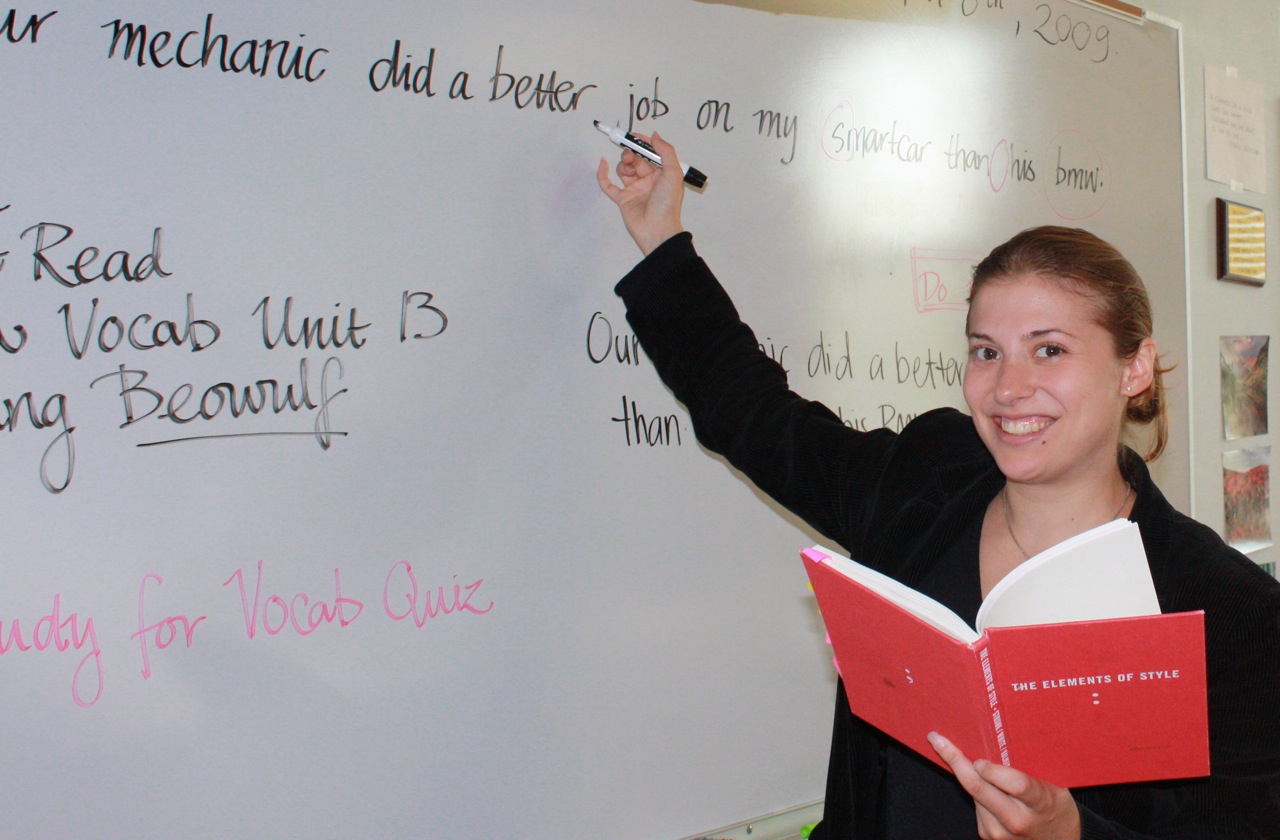 , 2009.
mechanic did a better job on my smartcar than his bmw.
Read
Vocab Unit 13
Beowulf
Do
Our
did a better
than
his
for Vocab Quiz
THE ELEMENTS OF STYLE
THE ELEMENTS OF STYLE